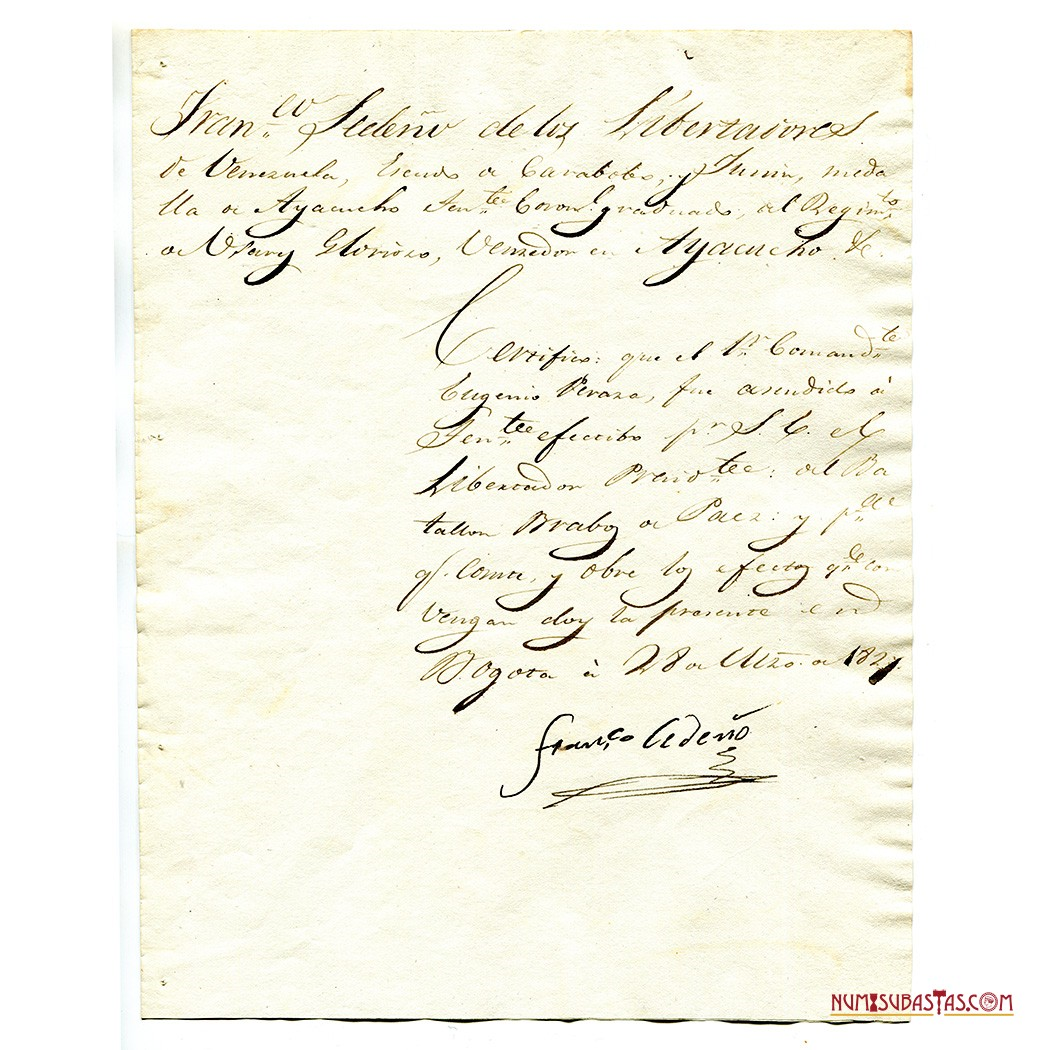 Fran.co Sedeño de los Libertadores
de Venezuela, Escudo de Carabobo, y Junin, meda
lla de Ayacucho Ten.te Coron.l graduado, del Regim.to
de Usary Glorioso, Vensedor en Ayacucho &.
Certifico: que el 1.r Comand.te
Eugenio Peraza, fue asendido á
Ten.te efectibo p.r S. E. el
Libertador Presid.te: del Ba
tallon Brabo de Paez: y p.a
q.e Conste, y obre los efectos q.e con
vengan doy la presente e en
Bogota à 28 de Mzo. de 1827.
Fran.co Cedeño
NUMISUBASTAS.COM